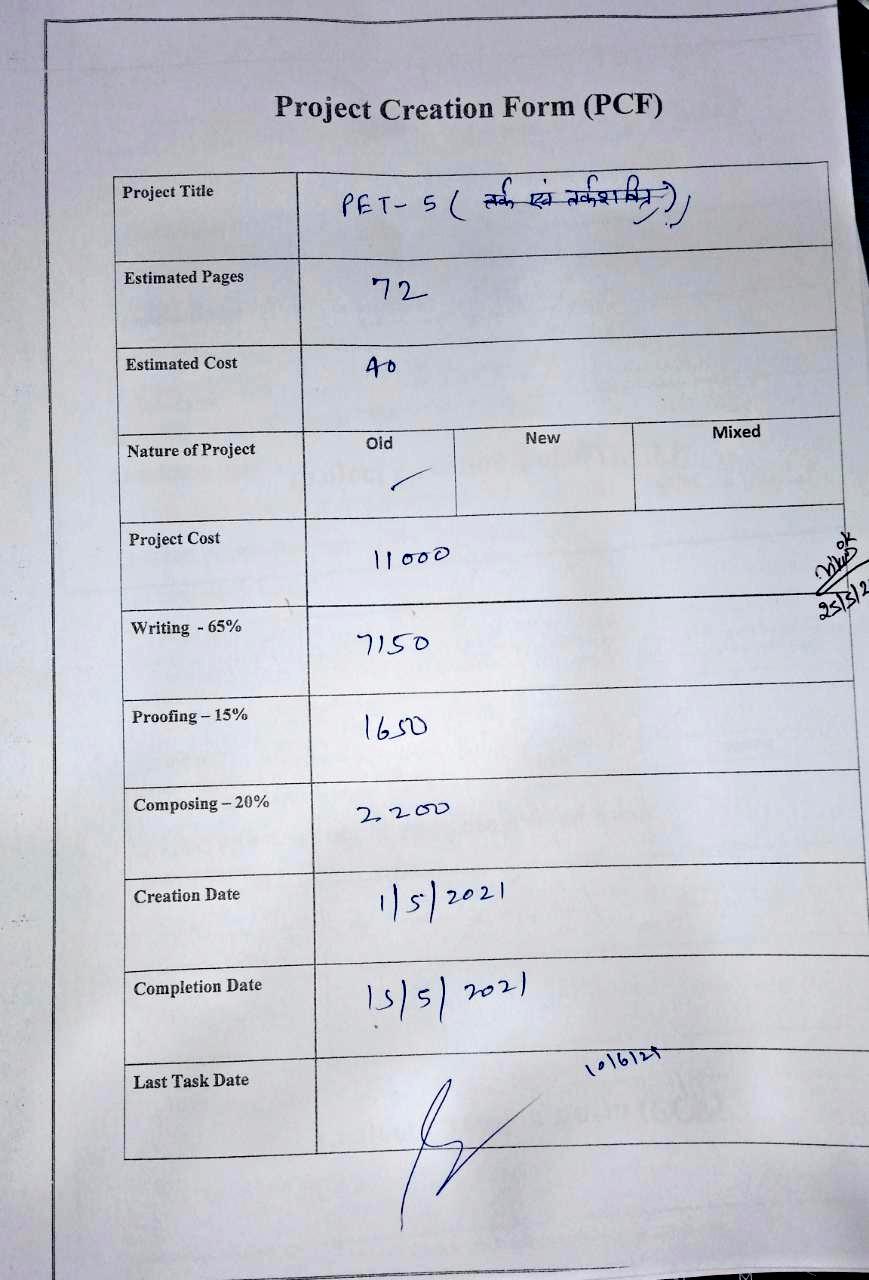 Project Creation Form (PCF)
Project Title
PET- 5 ( तर्क एवं तर्कशक्ति )
Estimated Pages
72
Estimated Cost
40
Nature of Project
Old
New
Mixed
Project Cost
11000
ok
25/5/2
Writing - 65%
7150
Proofing – 15%
1650
Composing – 20%
2200
Creation Date
1/5/2021
Completion Date
15/5/2021
Last Task Date
10/6/21